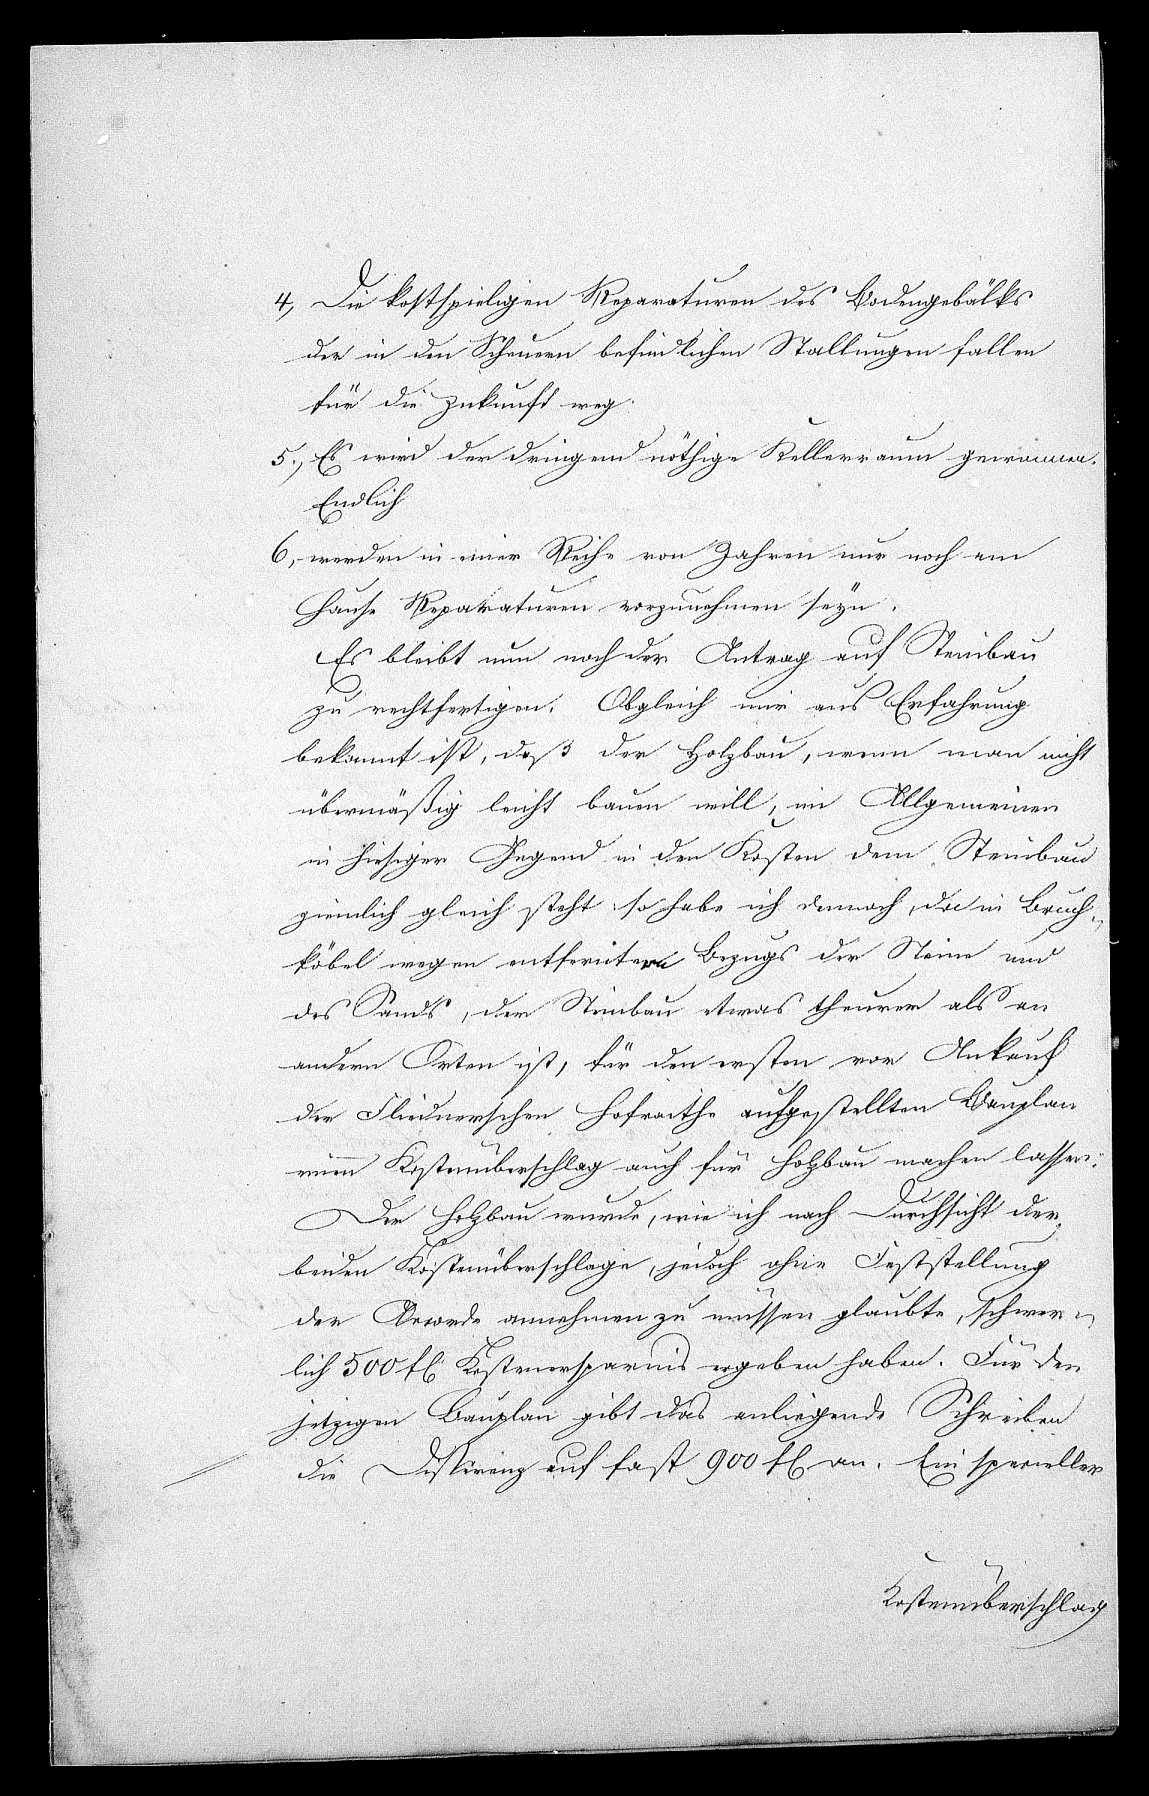 4, Die kostspieligen Reparaturen des Bodengebälks
der in den Scheuern befindlichen Stallungen fallen
für die Zukunft weg.
5., Es wird der dringend nöthige Kellerraum gewonnen.
Endlich
6, werden in einer Reihe von Jahren nur noch am
Hause Reparaturen vorzunehmen seyn.
Es bleibt nun noch der Antrag auf Steinbau
zu rechtfertigen. Obgleich mir aus Erfahrung
bekannt ist, daß der Holzbau, wenn man nicht
übermäßig leicht bauen will, im Allgemeinen
in hiesiger Gegend in den Kosten dem Steinbau
ziemlich gleich steht so habe ich dennoch, da in Bruch-
köbel wegen entfernteren Bezugs der Steine und
des Sands, der Steinbau etwas theurer als an
andern Orten ist, für den ersten vor Ankauf
der Fliednerschen Hofraithe aufgestellten Bauplan
einen Kostenüberschlag auch für Holzbau machen lassen.
Der Holzbau wurde, wie ich nach Durchsicht der
beiden Kostenüberschlage, jedoch ohne Feststellung
der Accorde annehmen zu müssen glaubte, schwer-
lich 500 fl Kostenersparnis ergeben haben. Für den
jetzigen Bauplan gibt das anliegende Schreiben
die Differenz auf fast 900 fl an. Ein specieller
Kostenüberschlag